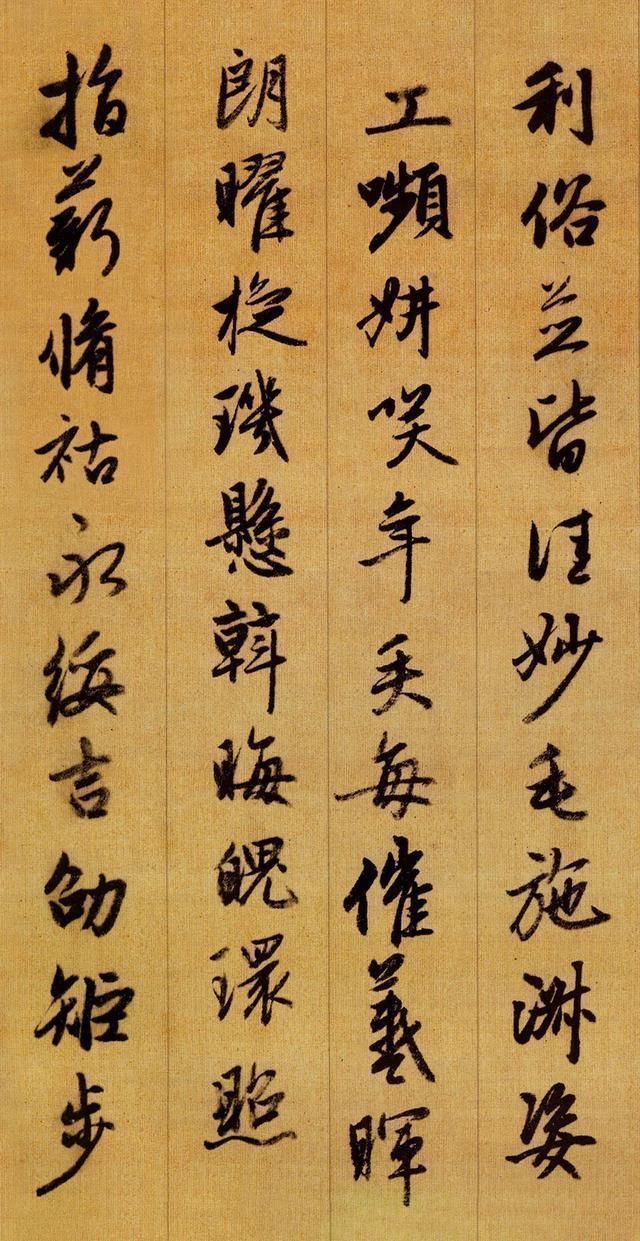 利俗並皆佳妙毛施淑姿
工嚬妍笑年矢每催羲暉
朗曜旋璣懸斡晦魄環照
指薪脩祜永綏吉劭矩步